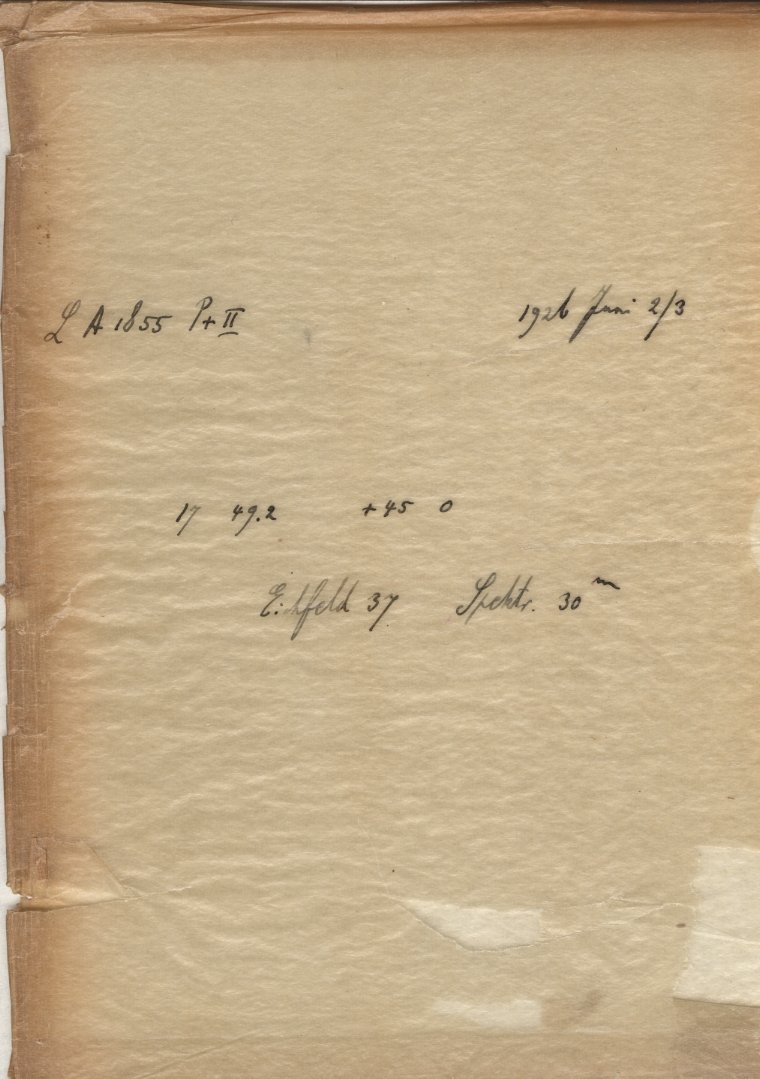 L A 1855 P+II 1926 Juni 2/3
17 49.2 +45 0
Eichfeld 37 Spektr. 30ᵐ